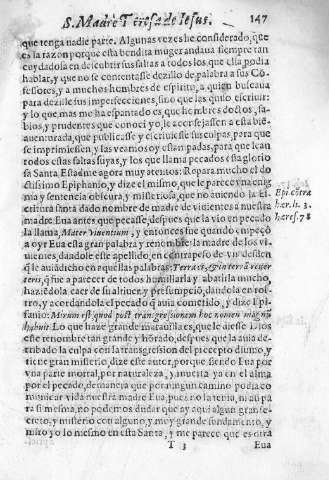 S. Madre Teresa de Iesus.
147
que tenga nadie parte. Algunas vezes he considerado, que
es la razon porque esta bendita muger andaua siempre tan
cuydadosa en descubrir sus faltas a todos los que ella podia
hablar, y que no se contentasse dezillo de palabra a sus Có
fessores, y a muchos hombres de espiritu, a quien buscaua
para dezille sus imperfecciones, sino que las quiso escriuir:
y lo que mas me ha espantado es, que hombres doctos, sa-
bios, y prudentes que conoci yo, le aconsejassen a esta bie-
auenturada, que publicasse y escriuiesse sus culpas, para que
se imprimiessen, y las veamos oy estampadas, para que lean
todos estas faltas suyas, y los que llama pecados esta glorio
sa Santa. Estadme agora muy atentos: Repara mucho el do
ctissimo Epiphanio, y dize el mismo, que le parece vna
ma y sentencia obscura, y misteriosa, que no auiendo la Es
critura santa dado nombre de madre de viuientes a nuestra
madre Eua antes que pecasse, despues que la vio en pecado
la llama, Mater viuentium, y entonces fue quando empeçò
a oyr Eua esta gran palabra y renombre la madre de los vi-
uientes, dandole este apellido, en contrapeso de vn desden
q̃ le auia dicho en aquellas palabras: Terra es, & in terrã reuer
teris, q̃ fue a parecer de todos humillarla y abatirla mucho,
hazicdola caer de su altiuez y presumpciõ, dandola en ros-
tro, y acordandola el pecado q̃ auia cometido, y dize Epi-
fanio: Mirum est, quod post transgressionem hoc nomen magnũ
habuit. Lo que haze grande marauilla es, que le diesse Dios
este renombre tan grande y hõrado, despues que la auia de-
rribado la culpa con la transgression del precepto diuino, y
tiene gran misterio, dize este autor, porque siendo Eua por
vna parte mortal, por naturaleza, y muerta ya en el alma
por el pecado, de manera que por ningun camino podia co
municar vida nuestra madre Eua, pues no la tenia, ni aun pa
ra si mesma, no podemos dudar que ay aqui algun gran se-
creto, y misterio con alguno, y muy grande fundamento, y
miro yo lo mesmo en esta Santa, y me parece que es otra
Epi cõtra
hær. li. 3.
hæres. 78
T 3
Eua